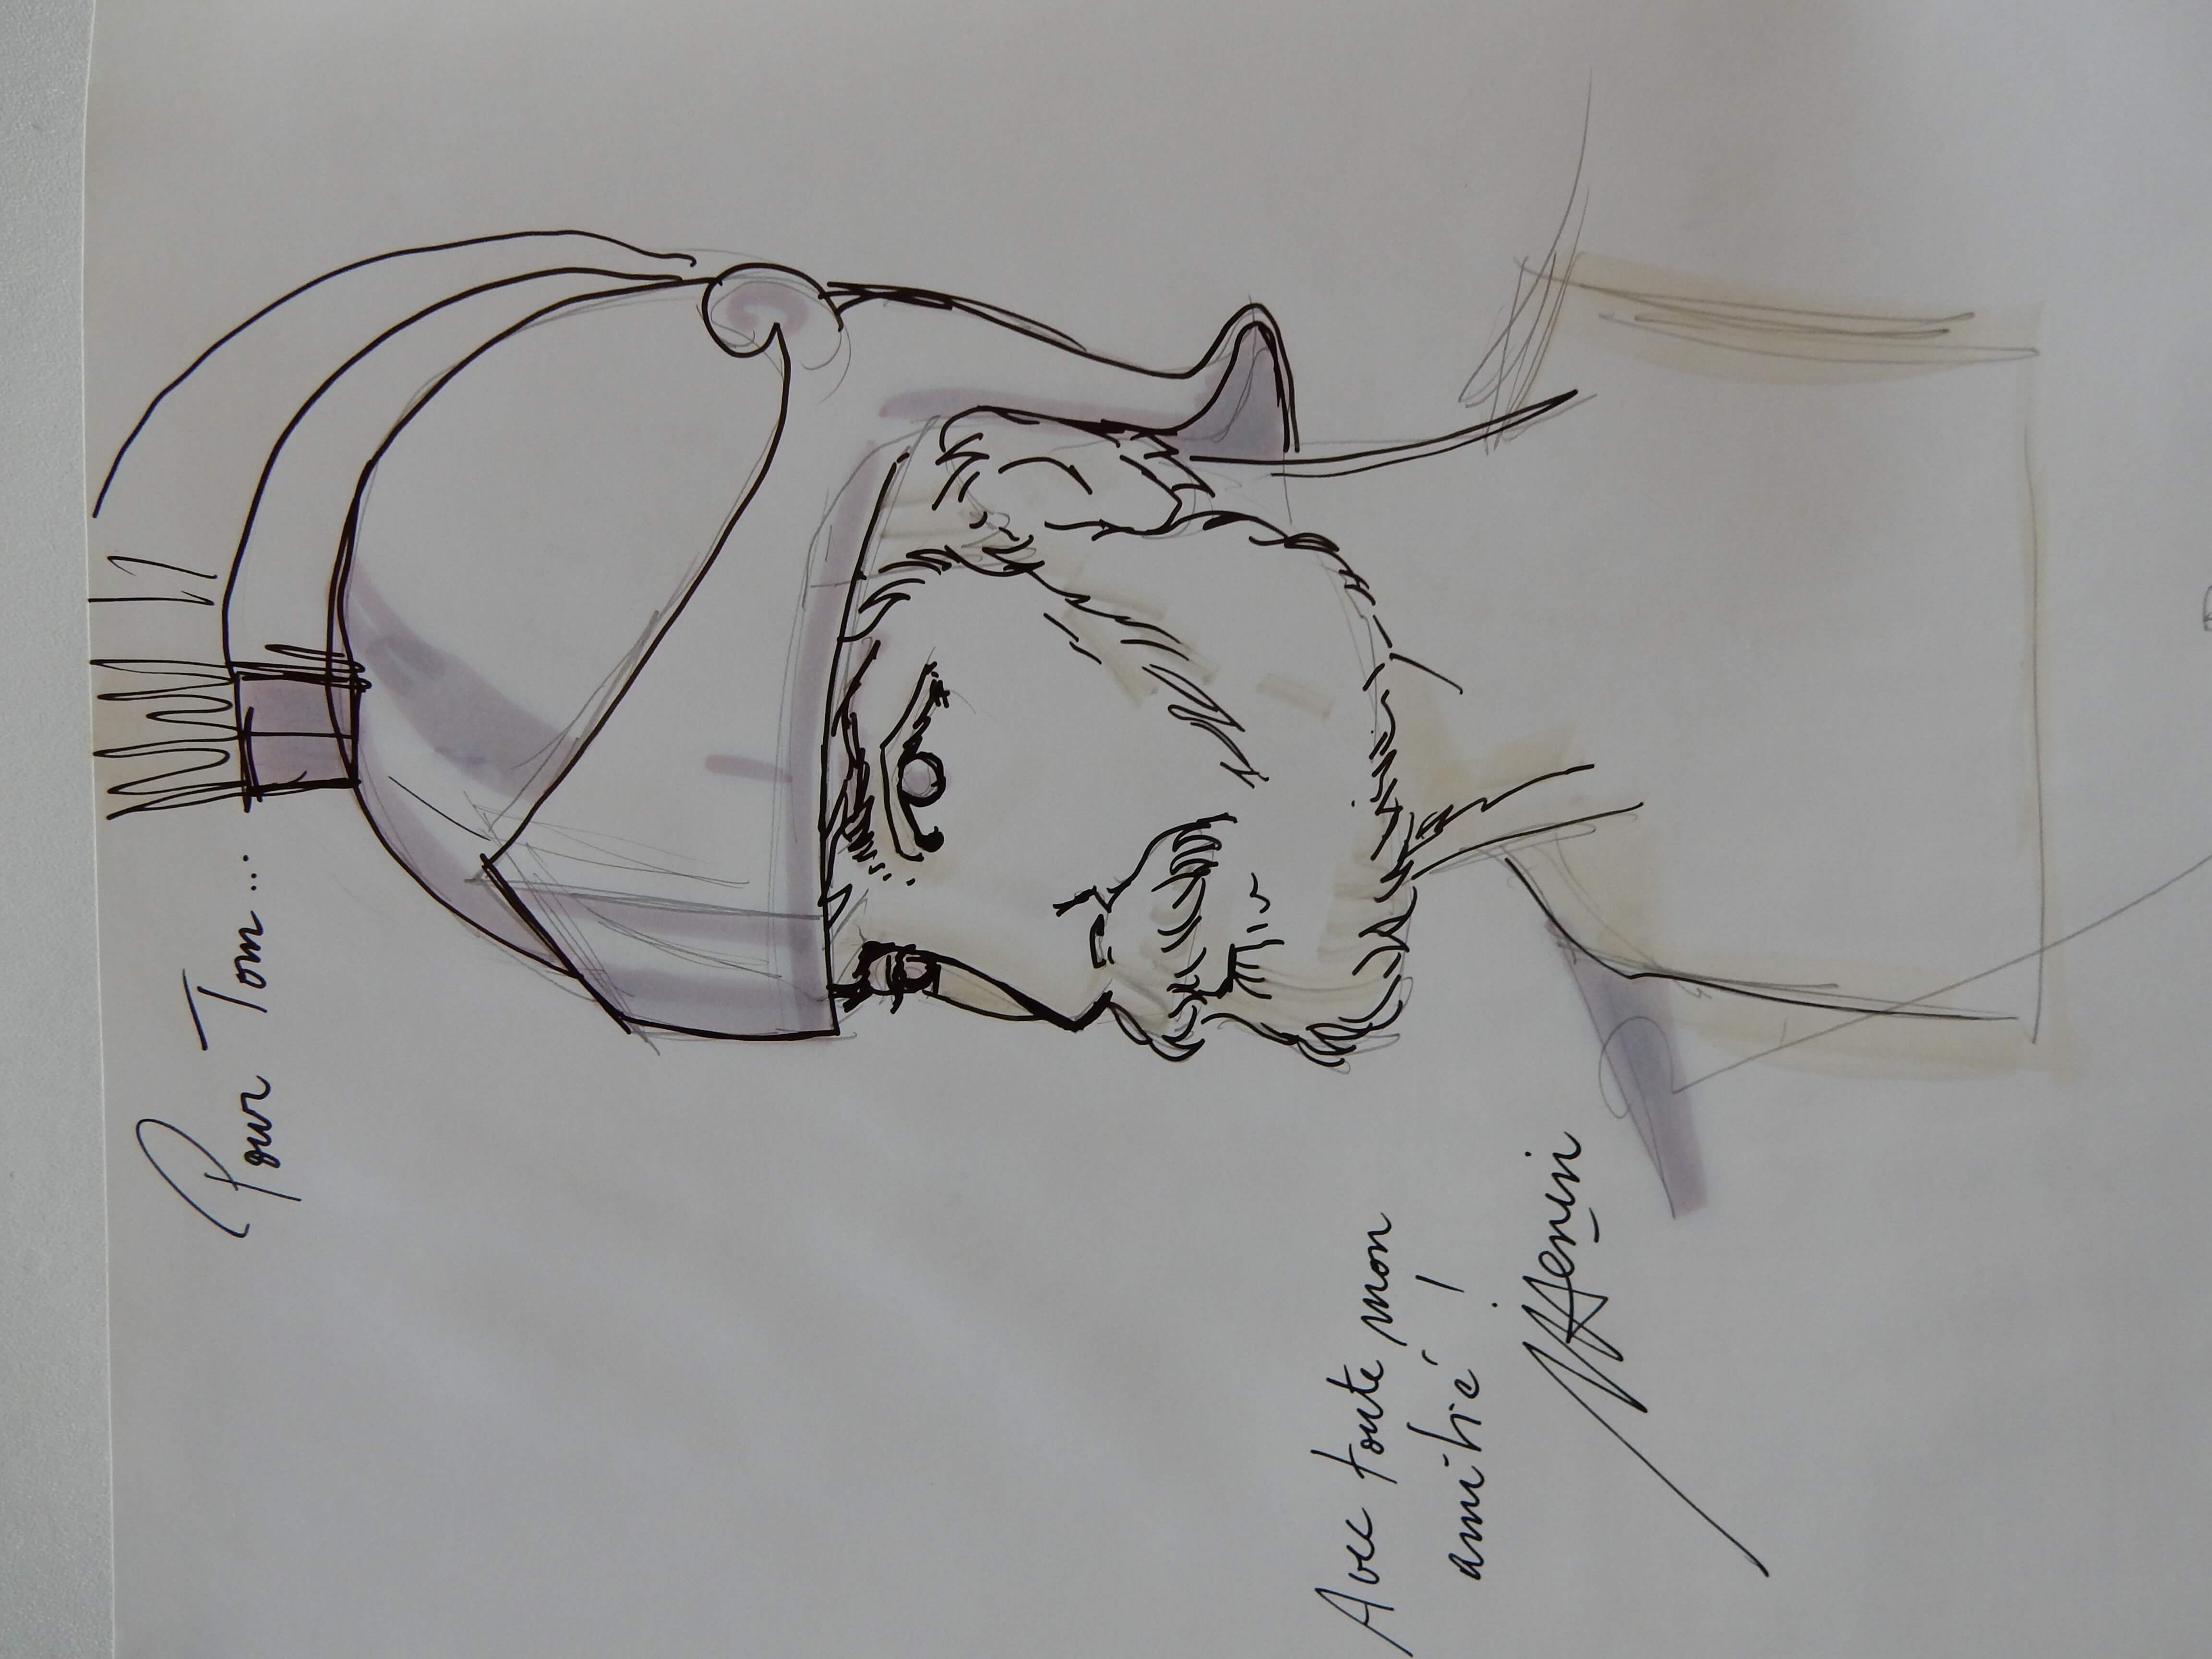 Pour Tom...
Avec toute mon
amitié !